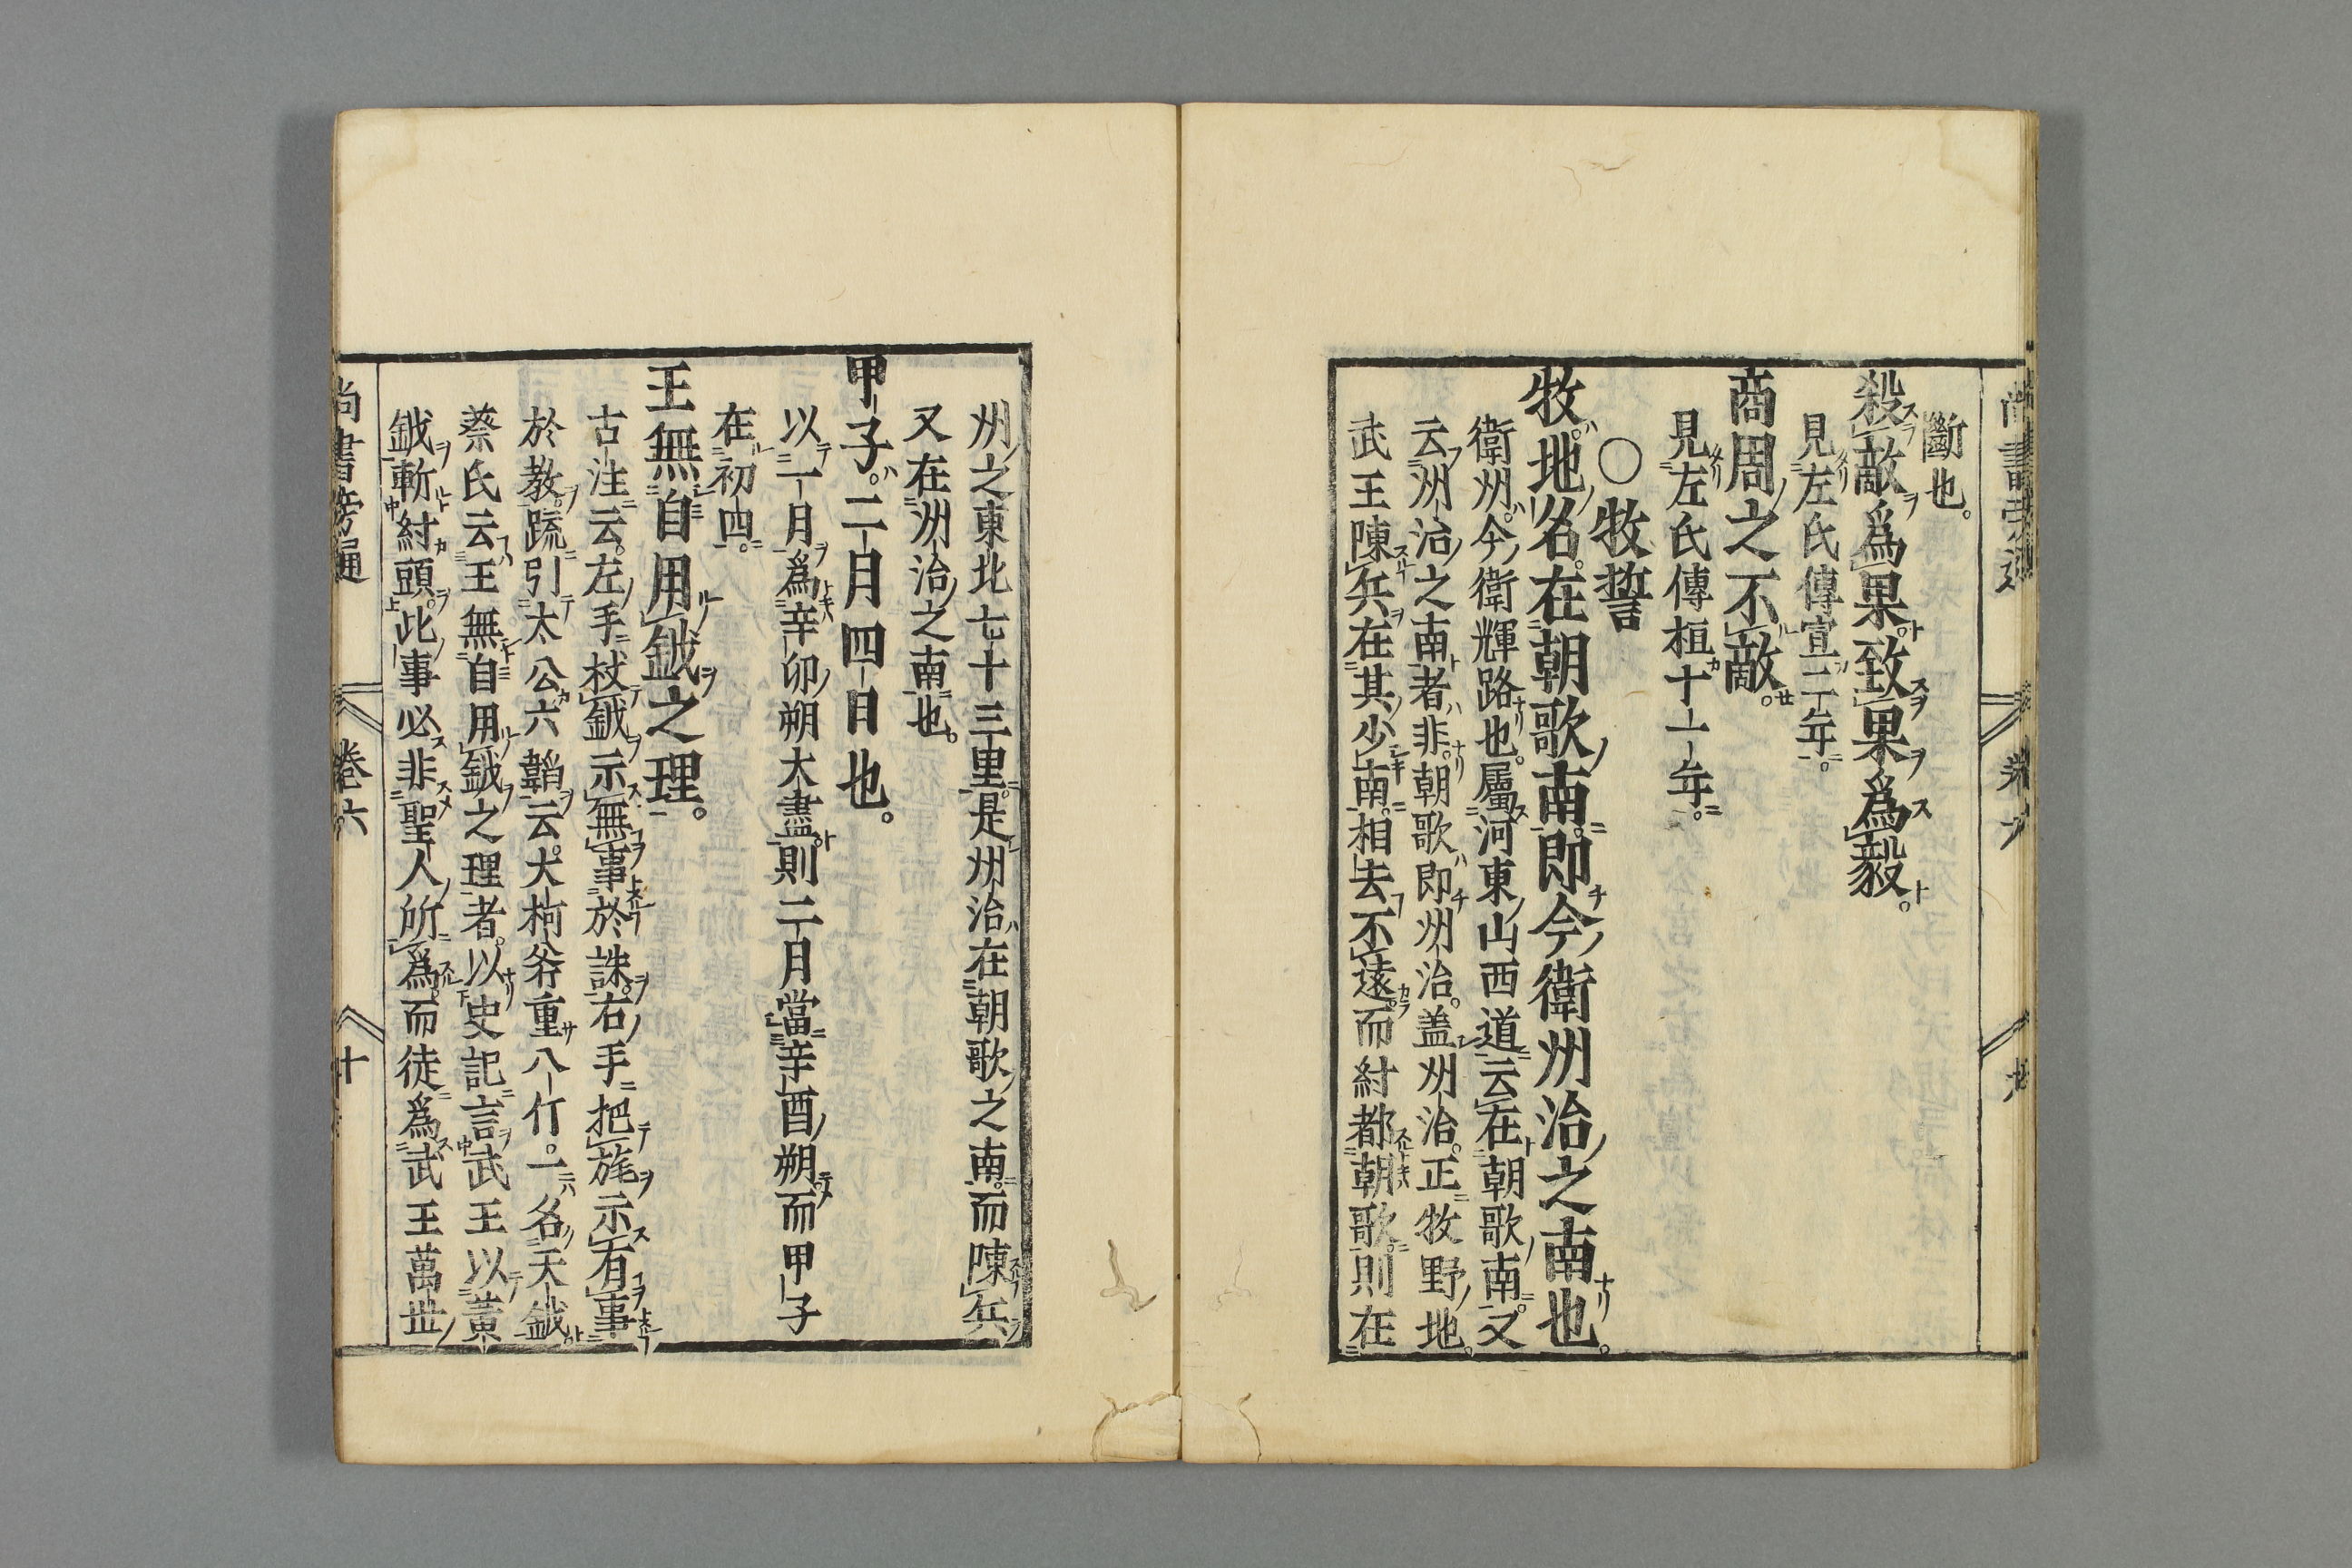 斷也。
殺敵爲果。致果爲毅。
見左氏傳宣二年。
商周之不敵。
見左氏傳桓十一年。
○牧誓
牧地名。在朝歌南。即今衛州治之南也。
衛州。今衛輝路也。屬河東山西道。云在朝歌南。又
云州治之南者非。朝歌即州治。蓋州治。正牧野地。
武王陳兵在其少南。相去不遠。而紂都朝歌。則在
州之東北七十三里。是州治在朝歌之南。而陳兵
又在州治之南也。
甲子。二月四日也。
以一月爲辛卯朔大盡。則二月當辛酉朔。而甲子
在初四。
王無自用鉞之理。
古注云。左手杖鉞。示無事於誅。右手把旄。示有事
於教。疏引太公六韜云。大柯斧重八斤。一名天鉞。
蔡氏云。王無自用鉞之理者。以史記言武王以黃
鉞斬紂頭。此事必非聖人所爲。而徒爲武王萬世
尚書旁通 卷六 十